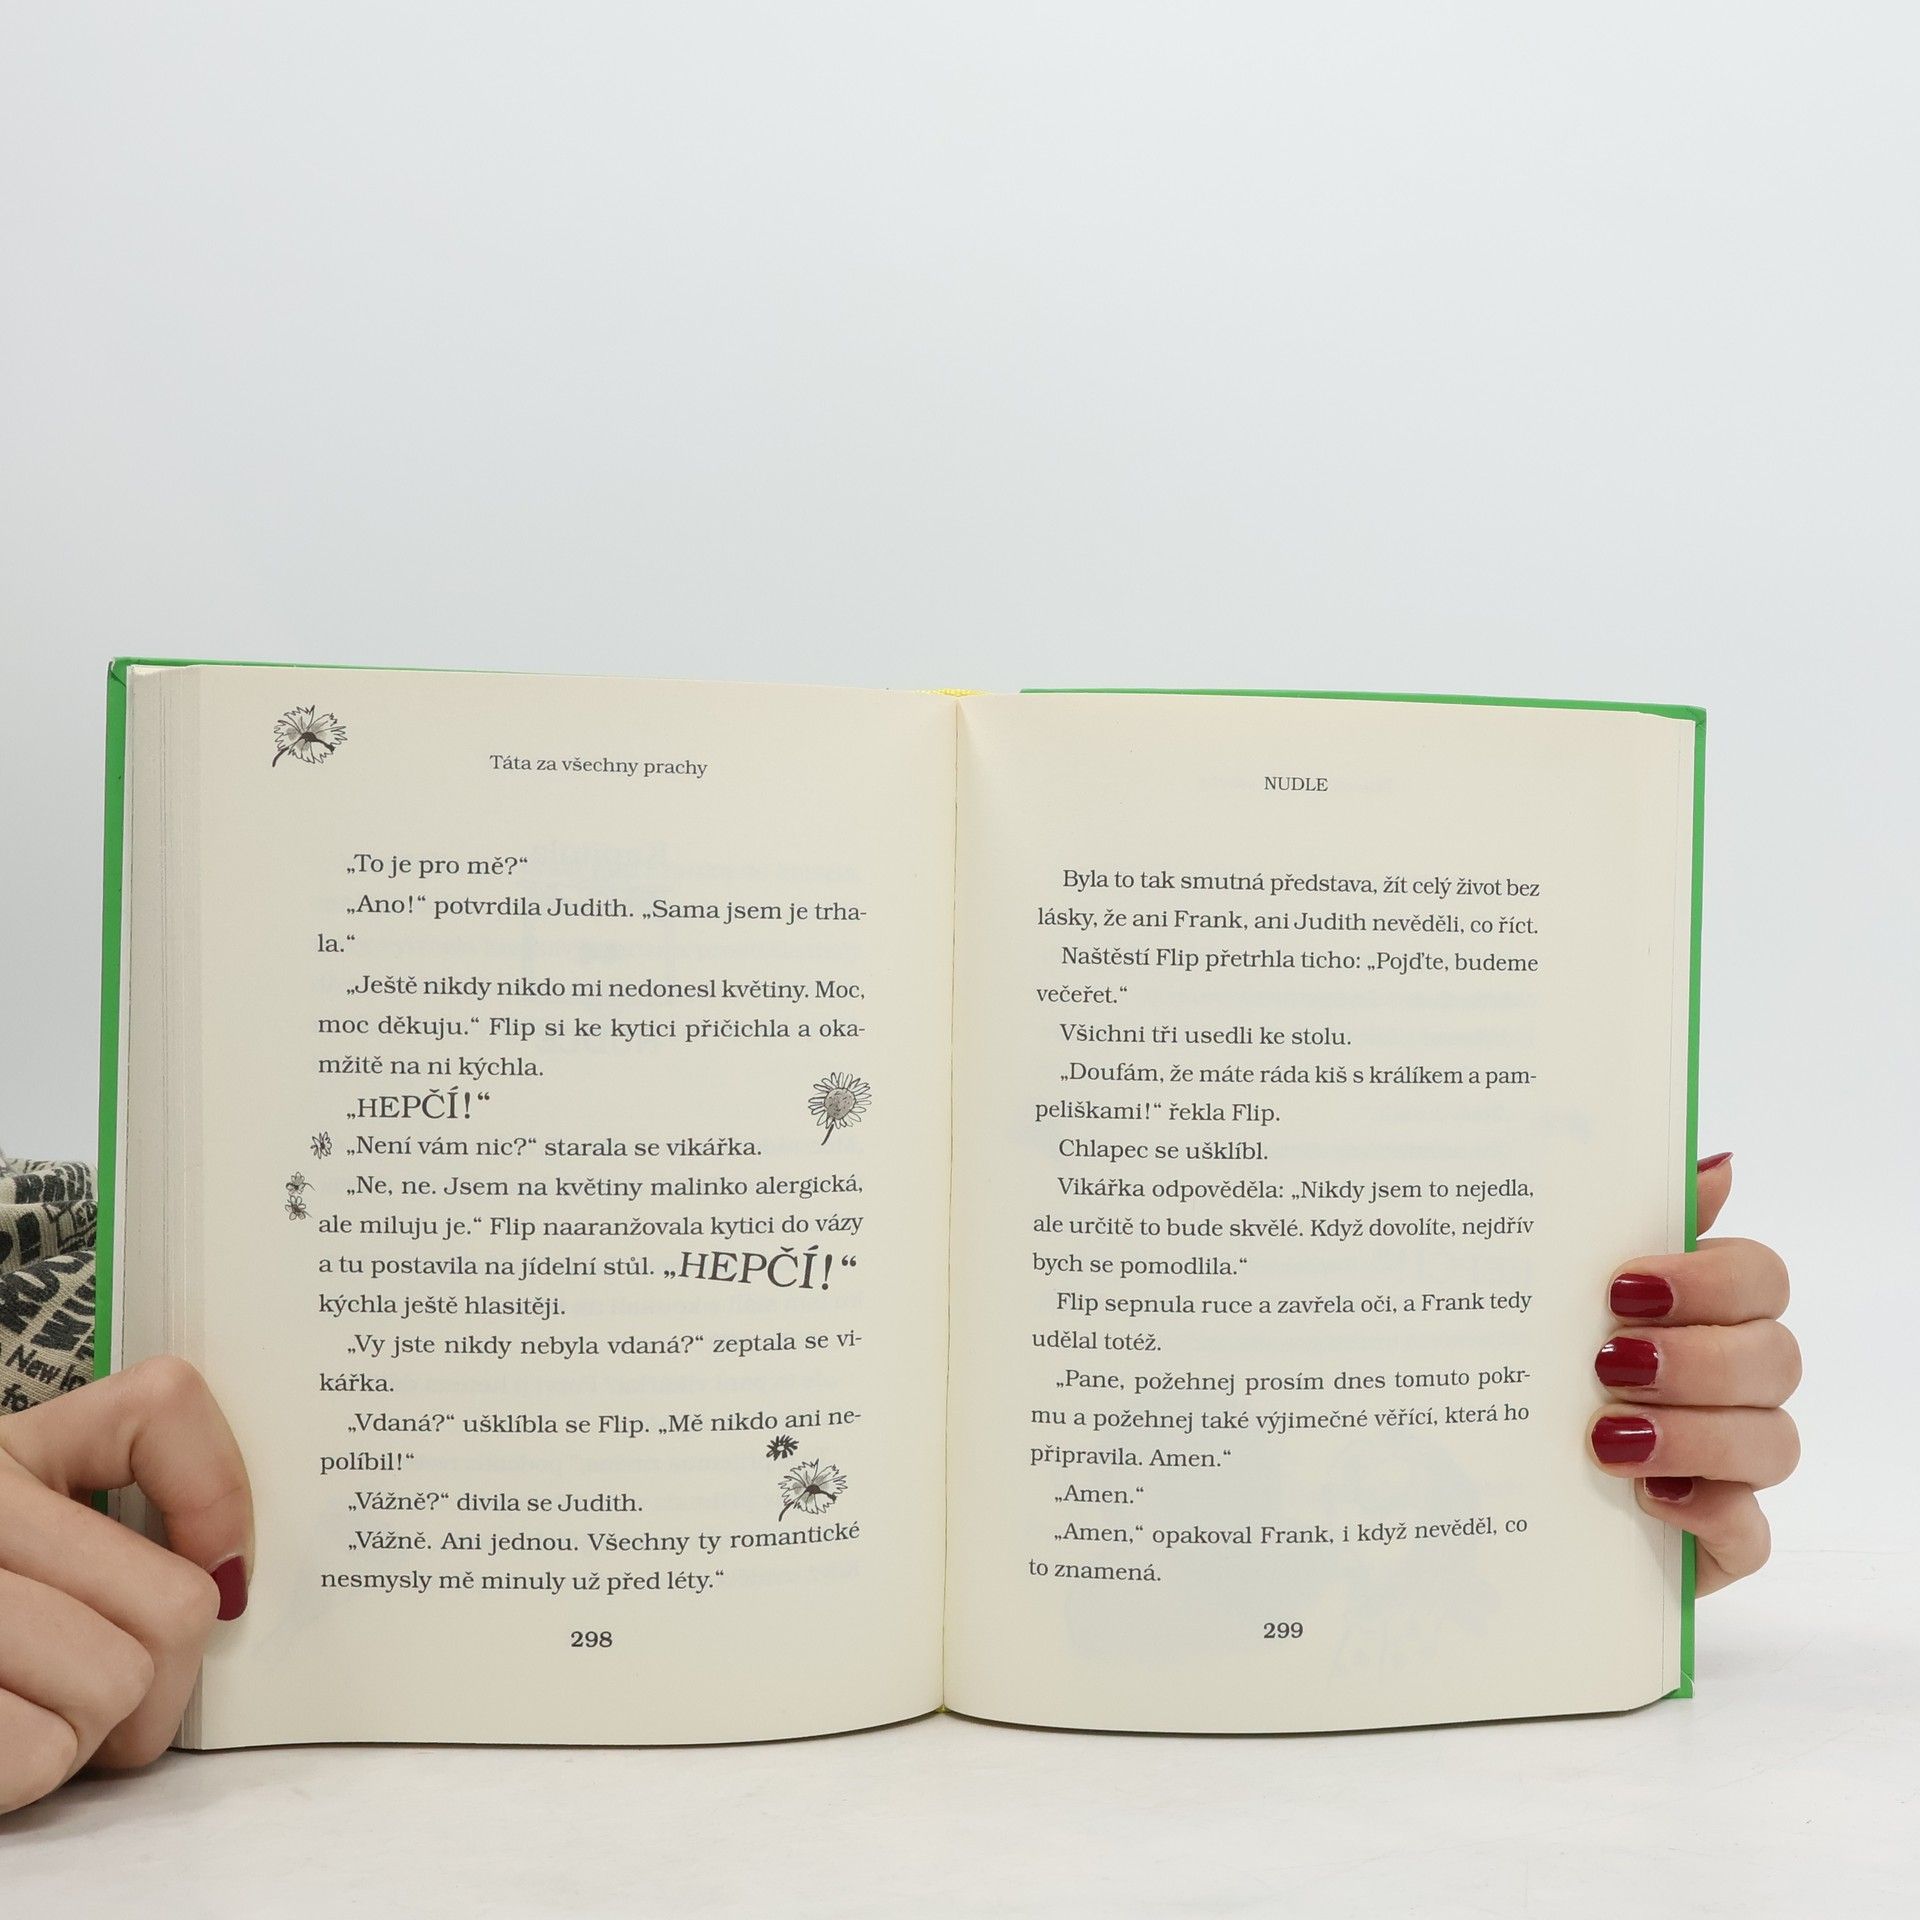 Táta za všechny prachy
„To je pro mě?“
„Ano!“ potvrdila Judith. „Sama jsem je trha-
la.“
„Ještě nikdy nikdo mi nedonesl květiny. Moc,
moc děkuju.“ Flip si ke kytici přičichla a oka-
mžitě na ni kýchla.
„HEPČÍ!“
„Není vám nic?“ starala se vikářka.
„Ne, ne. Jsem na květiny malinko alergická,
ale miluju je.“ Flip naaranžovala kytici do vázy
a tu postavila na jídelní stůl. „HEPČÍ!“
kýchla ještě hlasitěji.
„Vy jste nikdy nebyla vdaná?“ zeptala se vi-
kářka.
„Vdaná?“ ušklíbla se Flip. „Mě nikdo ani ne-
políbil!“
„Vážně?“ divila se Judith.
„Vážně. Ani jednou. Všechny ty romantické
nesmysly mě minuly už před léty.“
298
NUDLE
Byla to tak smutná představa, žít celý život bez
lásky, že ani Frank, ani Judith nevěděli, co říct.
Naštěstí Flip přetrhla ticho: „Pojďte, budeme
večeřet.“
Všichni tři usedli ke stolu.
„Doufám, že máte ráda kiš s králíkem a pam-
peliškami!“ řekla Flip.
Chlapec se ušklíbl.
Vikářka odpověděla: „Nikdy jsem to nejedla,
ale určitě to bude skvělé. Když dovolíte, nejdřív
bych se pomodlila.“
Flip sepnula ruce a zavřela oči, a Frank tedy
udělal totéž.
„Pane, požehnej prosím dnes tomuto pokr-
mu a požehnej také výjimečné věřící, která ho
připravila. Amen.“
„Amen.“
„Amen,“ opakoval Frank, i když nevěděl, co
to znamená.
299
New
fo